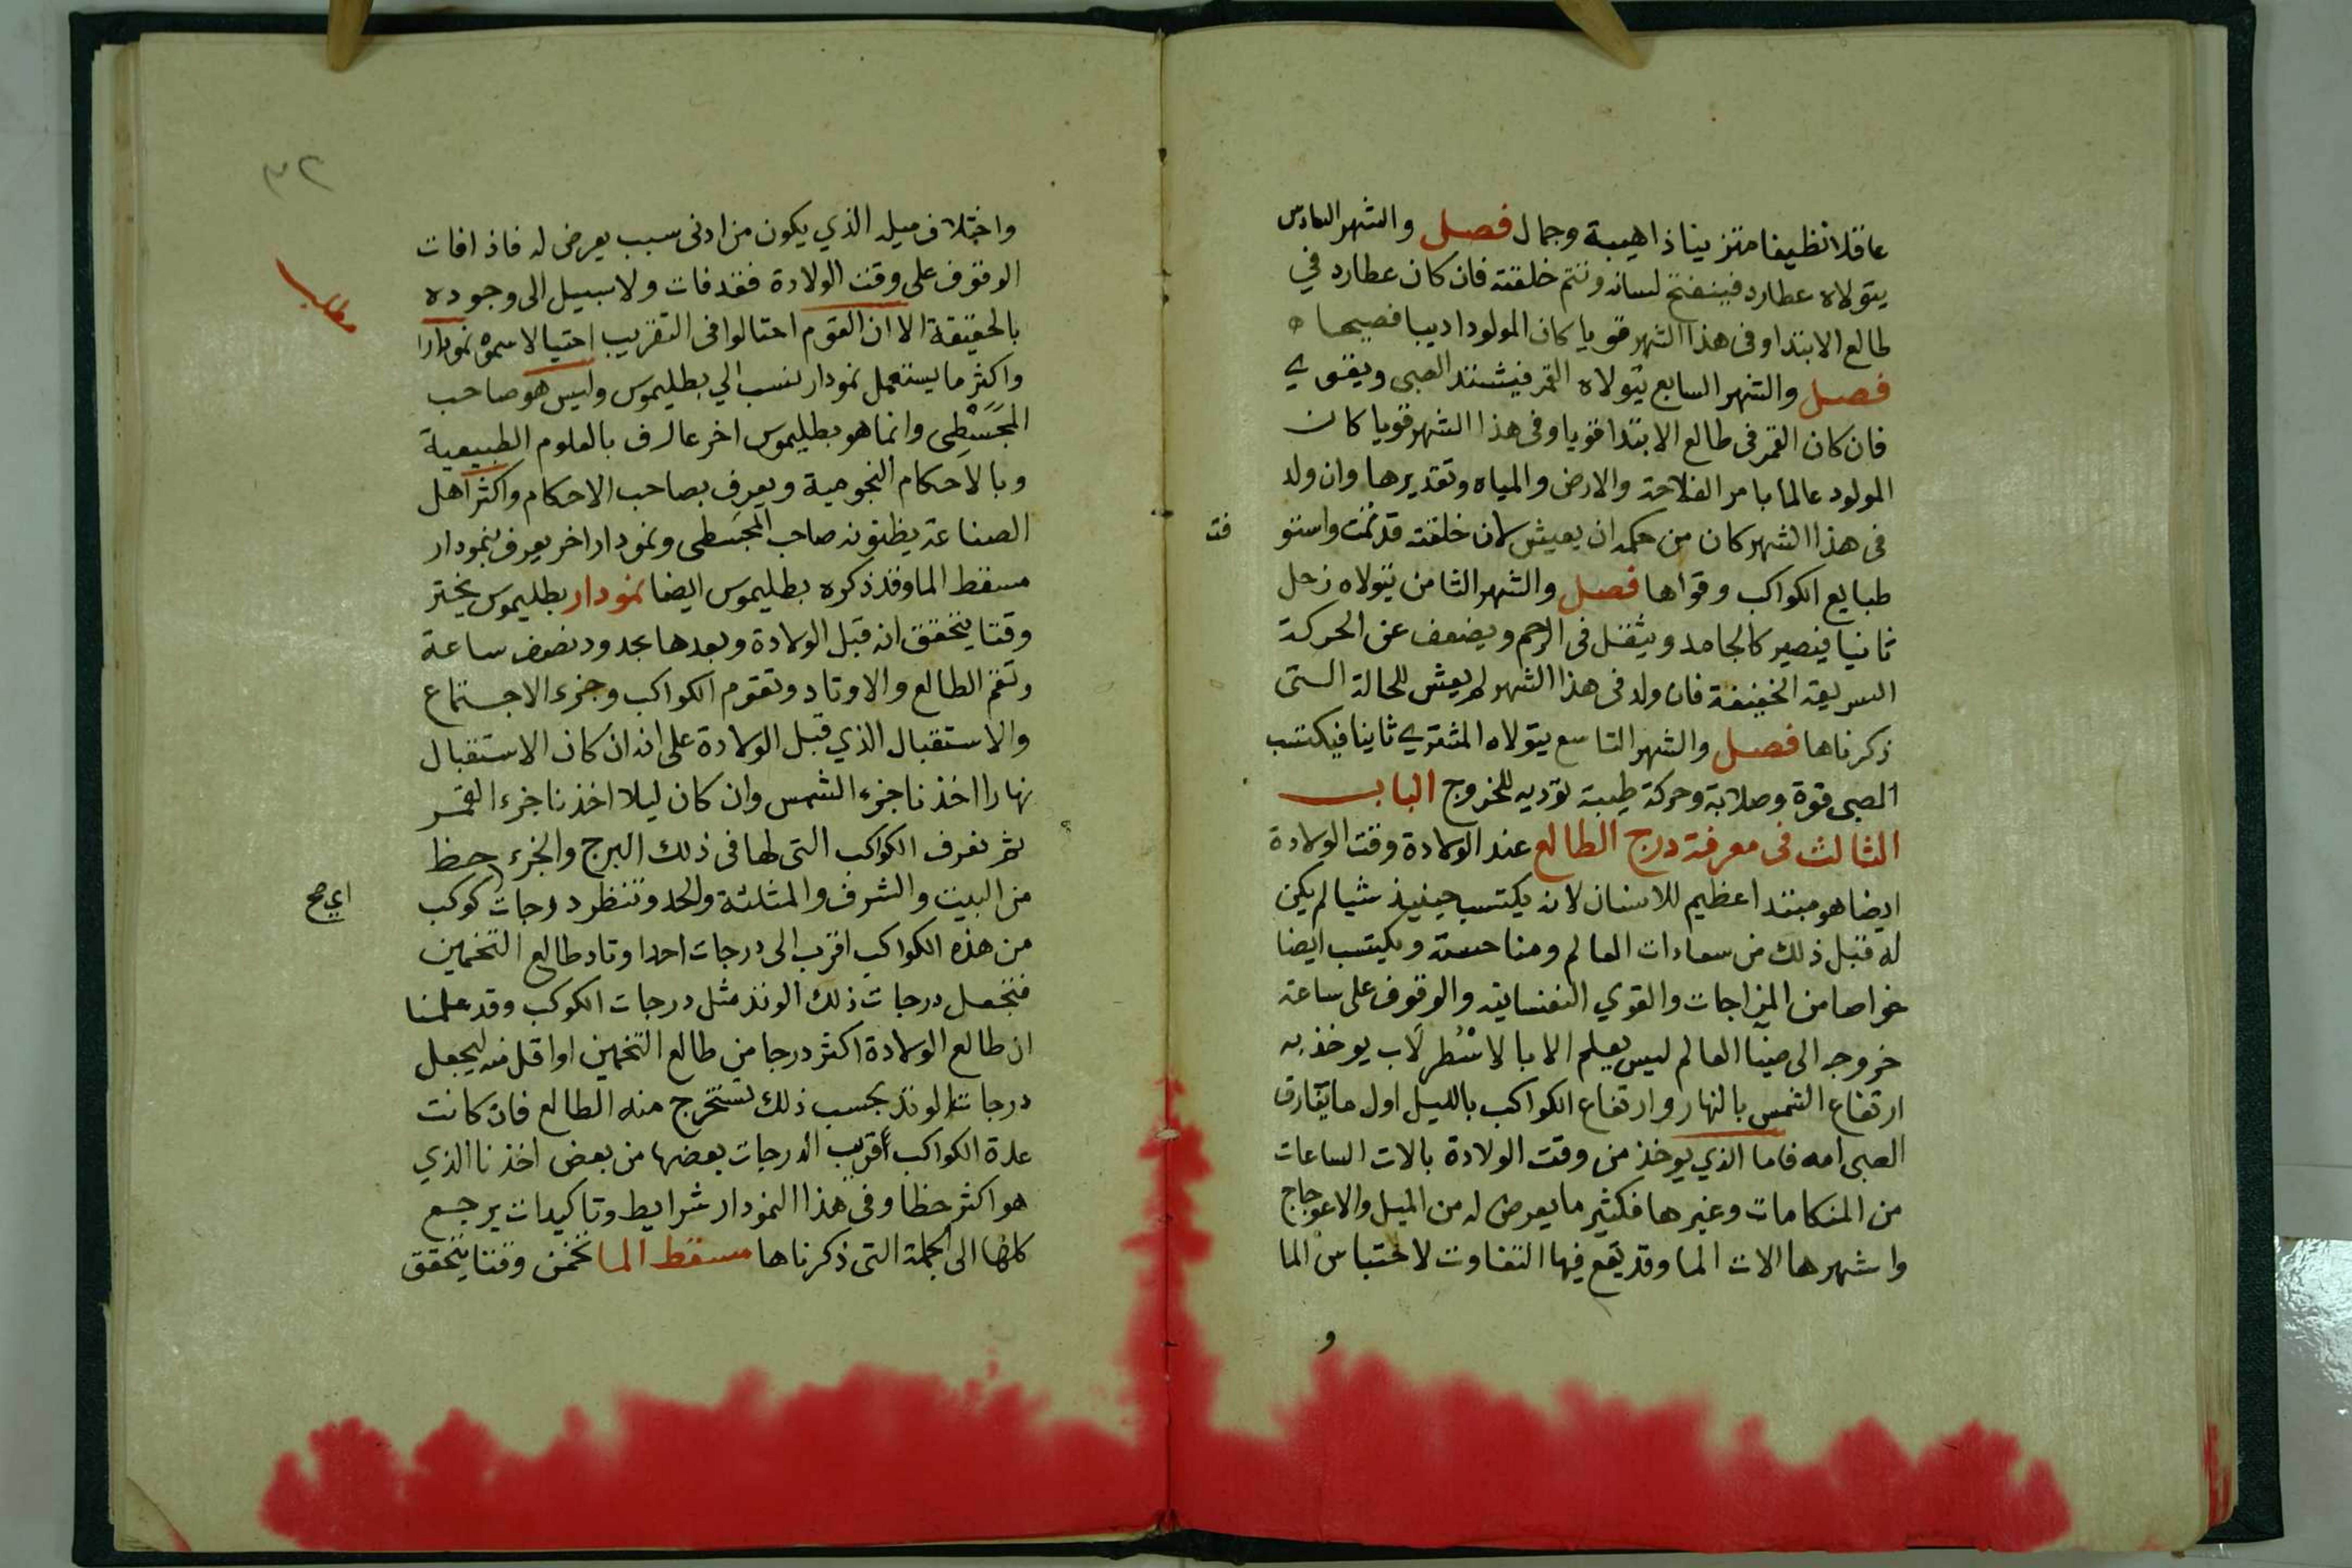 عاقلا نظيفا متزينا ذا هيبة وجمال فصل والشهر السادس
يتولاه عطارد فينفتح لسانه وتتم خلقته فان كان عطارد في
طالع الابتدا وفى هذا الشهر قويا كان المولود اديبا فصيحا ه
فصل والشهر السابع يتولاه القمر فيشتد الصبى ويقوي
فان كان القمر فى طالع الابتدا قويا وفى هذا الشهر قويا كان
المولود عالما بامر الفلاحة والارض والمياه وتقديرها وان ولد
فى هذا الشهر كان من حكمه ان يعيش لان خلقته قد تمت واستو
فت
طبايع الكواكب وقواها فصل والشهر الثامن يتولاه زحل
ثانيا فيصير كالجامد ويثقل فى الرحم ويضعف عن الحركة
السريعة الخفيفة فان ولد فى هذا الشهر لم يعش للحالة التى
ذكرناها فصل والشهر التاسع يتولاه المشتري ثانيا فيكتسب
الصبى قوة وصلابة وحركة طيبة توديه للخروج الباب
الثالث فى معرفة درج الطالع عند الولادة وقت الولادة
ايضا هو مبتدا عظيم للانسان لانه يكتسب حينيذ شيا لم يكن
له قبل ذلك من سعادات العالم ومناحسه ويكتسب ايضا
خواصا من المزاجات والقوي النفسانيه والوقوف على ساعة
خروجه الى ضيا العالم ليس يعلم الا بالاسْطُرلَاب يوخذ به
ارتفاع الشمس بالنهار وارتفاع الكواكب بالليل اول ما يفارق
الصبى امه فاما الذي يوخذ من وقت الولادة بالات الساعات
من المنكامات وغيرها فكثير ما يعرض له من الميل والاعوجاج
واشهرها الات الما وقد يقع فيها التفاوت لاحتباس الما
و
٣٢
واختلاف ميله الذي يكون من ادنى سبب يعرض له فاذا فات
الوقوف على وقت الولادة فقد فات ولا سبيل الى وجوده
بالحقيقة الا ان القوم احتالوا فى التقريب احتيالا سموه نمودارا
واكثر ما يستعمل نمودار ينسب الي بطليموس وليس هو صاحب
المَجَسْطِى وانما هو بطليموس اخر عارف بالعلوم الطبيعية
وبالاحكام النجومية ويعرف بصاحب الاحكام واكثر اهل
الصناعة يظنونه صاحب المجسطى ونمودار اخر يعرف بنمودار
مسقط الما وقد ذكره بطليموس ايضا نمودار بطليموس يختر
وقتا يتحقق انه قبل الولادة وبعدها بحدود نصف ساعة
وتقم الطالع والاوتاد وتقوم الكواكب وجزء الاجتماع
والاستقبال الذي قبل الولادة على انه ان كان الاستقبال
نهارا اخذنا جزء الشمس وان كان ليلا اخذنا جزء القمر
ثم نعرف الكواكب التى لها فى ذلك البرج والجزء حظ
من البيت والشرف والمثلثة والحد وتنظر درجات كوكب
اي صح
من هذه الكواكب اقرب الى درجات احد اوتاد طالع التخمين
فنجعل درجات ذلك الوتد مثل درجات الكوكب وقد علمنا
ان طالع الولادة اكثر درجا من طالع التخمين او اقل منه ليجعل
درجات الوتد بحسب ذلك يستخرج منه الطالع فان كانت
عدة الكواكب أقريب الدرجات بعضها من بعض اخذنا الذي
هو اكثر حظا وفى هذا النمودار شرايط وتاكيدات يرجع
كلها الى الجملة التى ذكرناها مسقط الما نخمن وقتا يتحقق